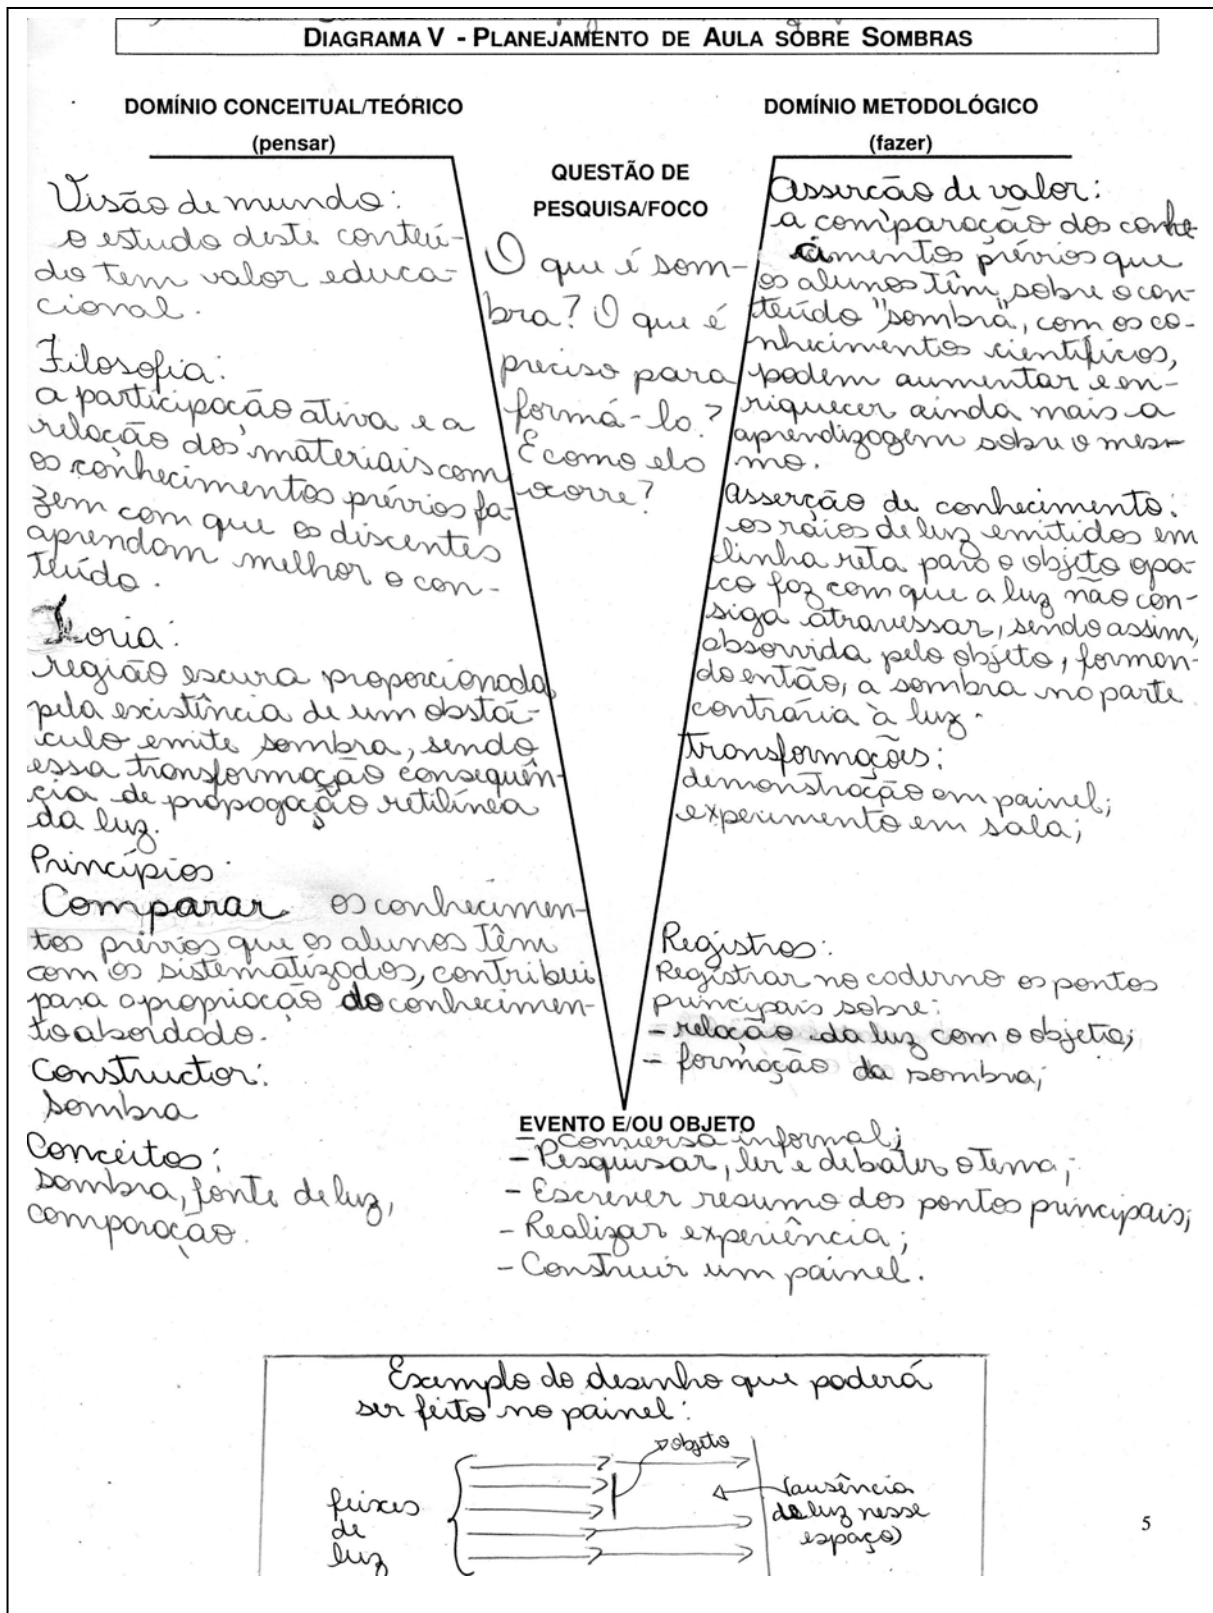 DIAGRAMA V - PLANEJAMENTO DE AULA SOBRE SOMBRAS
DOMÍNIO CONCEITUAL/TEÓRICO
(pensar)
Visão de mundo:
o estudo deste conteú-
do tem valor educa-
cional.
Filosofia:
a participação ativa e a
relação dos materiais com
os conhecimentos prévios fa-
zem com que os discentes
aprendam melhor o con-
teúdo.
Teoria:
região escura proporcionada
pela existência de um obstá-
culo emite sombra, sendo
essa transformação consequên-
cia de propagação retilínea
da luz.
Princípios:
Comparar os conhecimen-
tos prévios que os alunos têm
com os sistematizados, contribui
para apropriação do conhecimen-
to abordado.
Constructor:
sombra
Conceitos:
sombra, fonte de luz,
comparação.
QUESTÃO DE
PESQUISA/FOCO
O que é som-
bra? O que é
preciso para
formá-la?
E como ela
ocorre?
DOMÍNIO METODOLÓGICO
(fazer)
Asserção de valor:
a comparação dos conhe-
cimentos prévios que
os alunos têm, sobre o con-
teúdo "sombra", com os co-
nhecimentos científicos,
podem aumentar e en-
riquecer ainda mais a
aprendizagem sobre o mes-
mo.
Asserção de conhecimento:
os raios de luz emitidos em
linha reta para o objeto opa-
co faz com que a luz não con-
siga atravessar, sendo assim,
absorvida pelo objeto, forman-
do então, a sombra na parte
contrária à luz.
Transformações:
demonstração em painel;
experimento em sala;
Registros:
Registrar no caderno os pontos
principais sobre:
- relação da luz com o objeto;
- formação da sombra;
EVENTO E/OU OBJETO
- conversa informal;
- Pesquisar, ler e debater o tema;
- Escrever resumo dos pontos principais;
- Realizar experiência;
- Construir um painel.
Exemplo do desenho que poderá
ser feito no painel:
objeto
feixes
de
luz
(ausência
de luz nesse
espaço)
5